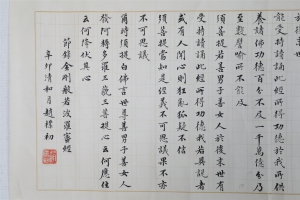 能受持讀誦此經所得功德於我所供
養諸佛功德百分不及一千萬億分乃
至算數譬喻所不能及
須菩提若善男子善女人於後末世有
受持讀誦此經所得功德我若具說者
或有人聞心則狂亂狐疑不信
須菩提當知是經義不可思議果報亦
不可思議
爾時須菩提白佛言世尊善男子善女人
發阿耨多羅三藐三菩提心云何應住
云何降伏其心
節錄金剛般若波羅蜜經
辛卯清和月趙樸初